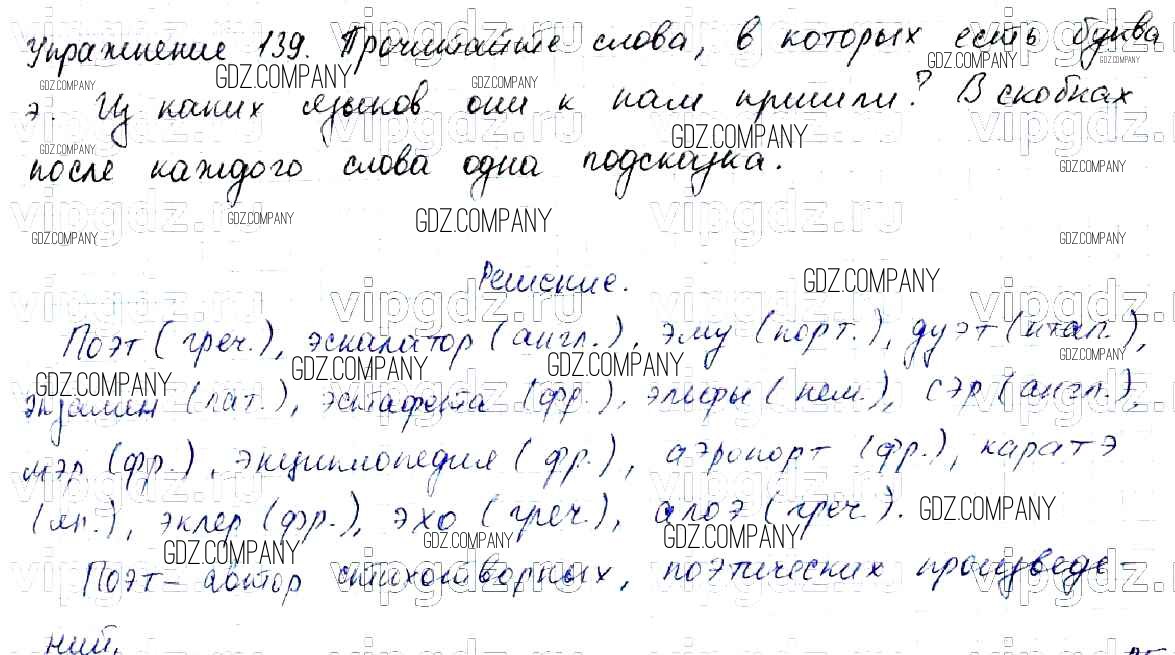 Упражнение 139. Прочитайте слова, в которых есть буква
э. Из каких языков они к нам пришли? В скобках
после каждого слова одна подсказка.
Решение.
Поэт (греч.), эскалатор (англ.), эму (порт.), дуэт (итал.),
экзамен (лат.), эстафета (фр.), эльфы (нем.), сэр (англ.),
мэр (фр.), энциклопедия (фр.), аэропорт (фр.), каратэ
(яп.), эклер (фр.), эхо (греч.), алоэ (греч.).
Поэт – автор стихотворных, поэтических произведе-
ний.